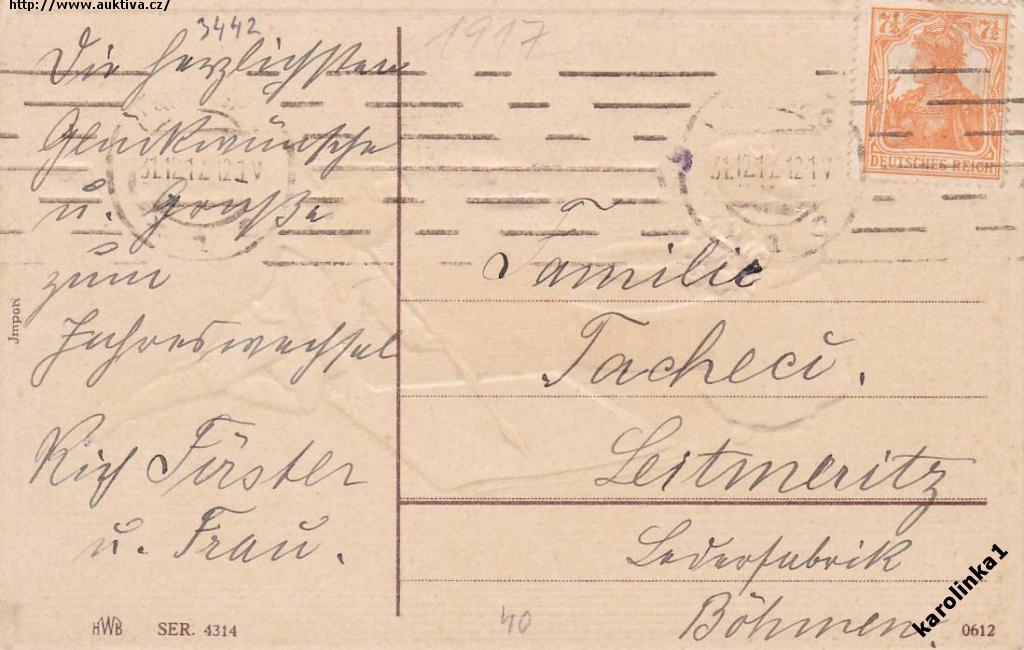 http://www.auktiva.cz/
3442
1917
7½ 7½
DEUTSCHES REICH
31.12.17.12-1V
31.12.17.12-1V
Die herzlichsten
Glückwünsche
u. Grüße
zum
Jahreswechsel
Rich Förster
u. Frau.
Familie
Tacheci.
Leitmeritz
Lederfabrik
Böhmen.
Import
HWB SER. 4314
40
0612
karolinka1